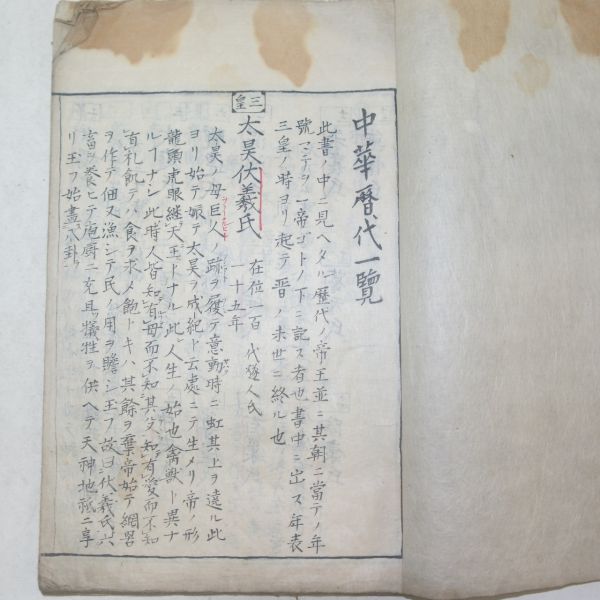 中華曆代一覽
此書ノ中ニ見ヘタル歷代ノ帝王並ニ其朝ニ當テノ年
號マテヲ一帝ゴトノ下ニ記ス者也書中ニ出ス年表
三皇ノ時ヨリ起テ晋ノ末世ニ終ル也
三皇
太昊伏羲氏
在位一百一十五年
代燧人氏
太昊ノ母巨人ノ跡ヲ履テ意動時ニ虹其上ヲ遠ル此
ヨリ始テ娠テ太昊ヲ成紀ト云處ニテ生メリ帝ノ形
龍頭虎眼継天王トナル此人生ノ始也禽獸ト異ナ
ルナシ此時人皆知有母而不知其父知有愛而不知
有礼飢テハ食ヲ求メ飽トキハ其餘ヲ棄帝始テ網罟
ヲ作テ佃又漁シテ民ノ用ヲ贍シ玉フ故曰伏羲氏六
畜ヲ養ヒテ庖厨ニ充且犧牲ヲ供ヘテ天神地祇ニ享
リ玉フ始畫八卦